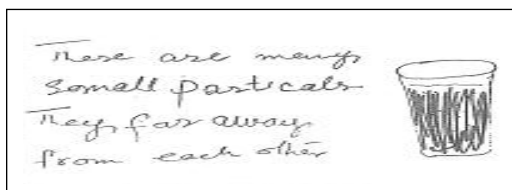 These are meny
somall pasticals
They far away
from each other